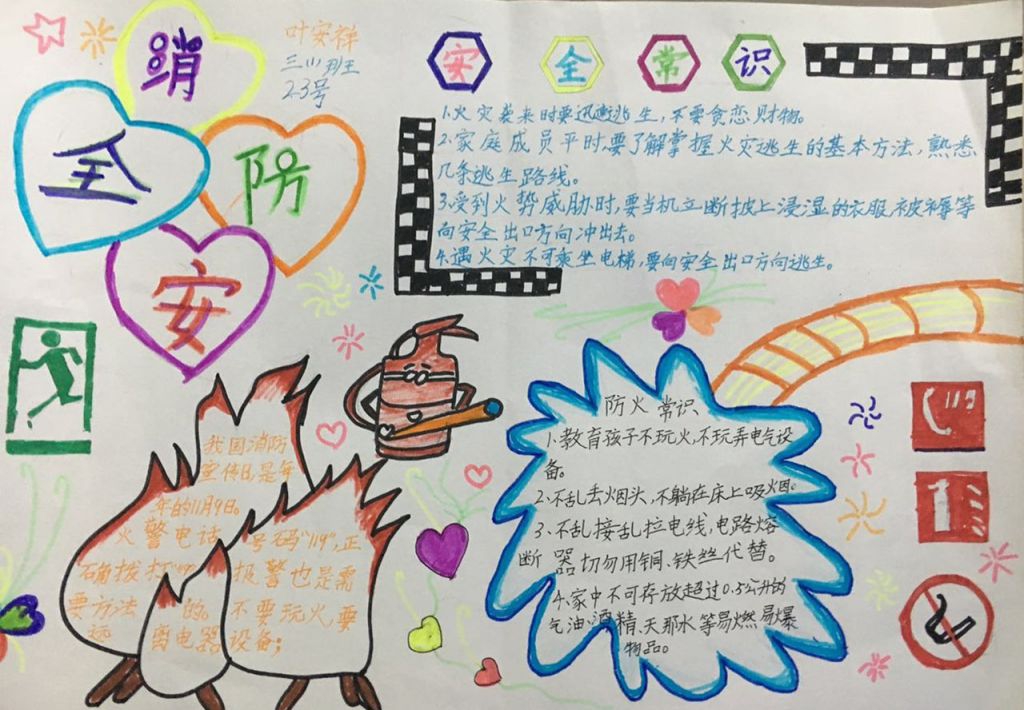 消
防
安
全
叶安祥
三(1)班
23号
安全常识
1.火灾袭来时要迅速逃生,不要贪恋财物。
2.家庭成员平时要了解掌握火灾逃生的基本方法,熟悉
几条逃生路线。
3.受到火势威胁时,要当机立断披上浸湿的衣服、被褥等
向安全出口方向冲出去。
4.遇火灾不可乘坐电梯,要向安全出口方向逃生。
我国消防
宣传日,是年
年的11月9日。
火警电话
号码"119",正
确拨打"
报警也是需
要方法
的。不要玩火要
离电器设备;
防火常识
1.教育孩子不玩火,不玩弄电气设
备。
2.不乱丢烟头,不躺在床上吸烟。
3.不乱接乱拉电线,电路熔
断器切勿用铜、铁丝代替。
4.家中不可存放超过0.5公升的
气油、酒精、天那水等易燃易爆
物品。
119